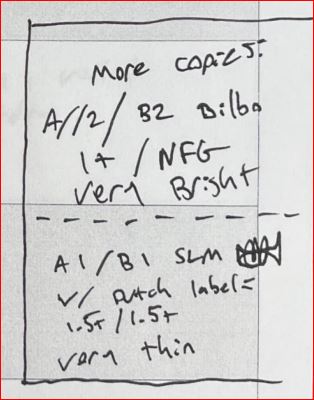 More copies:
A//2/ B2 Bilbo
1+ /NFG
very Bright
A1/B1 SLM
w/ Dutch label=
1.5+/1.5+
very thin